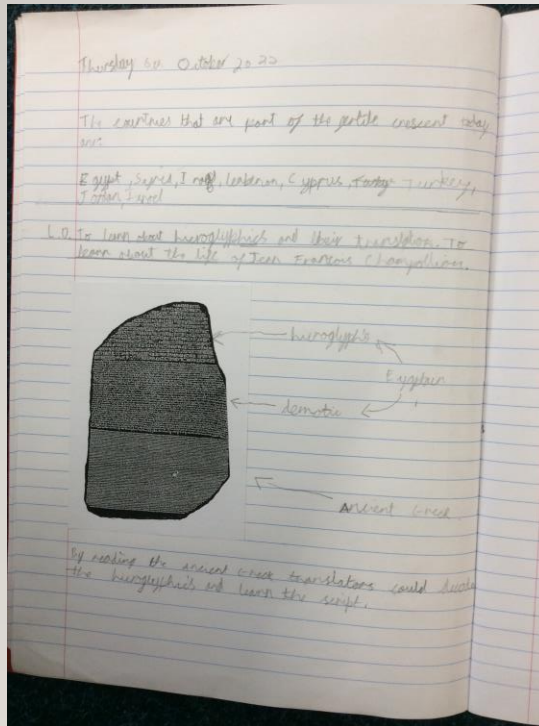 Thursday 6th October 2022
The countries that are part of the fertile crescent today
are:
Egypt, Syria, Iraq, Lenbenon, Cyprus, Turkey,
Jordan, Isreal
L.O. To learn about hieroglyphics and their translation. To
learn about the life of Jean Francois Champollion.
hieroglyphis
Egyptain
demotic
Ancient Greek
By reading the ancient Greek translators could decode
the hieroglyphics and learn the script.